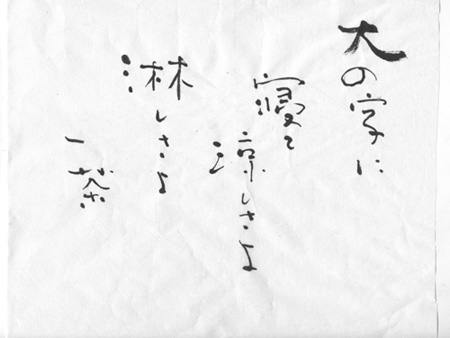 大の字に
寝て
涼しさよ
淋しさよ
一茶